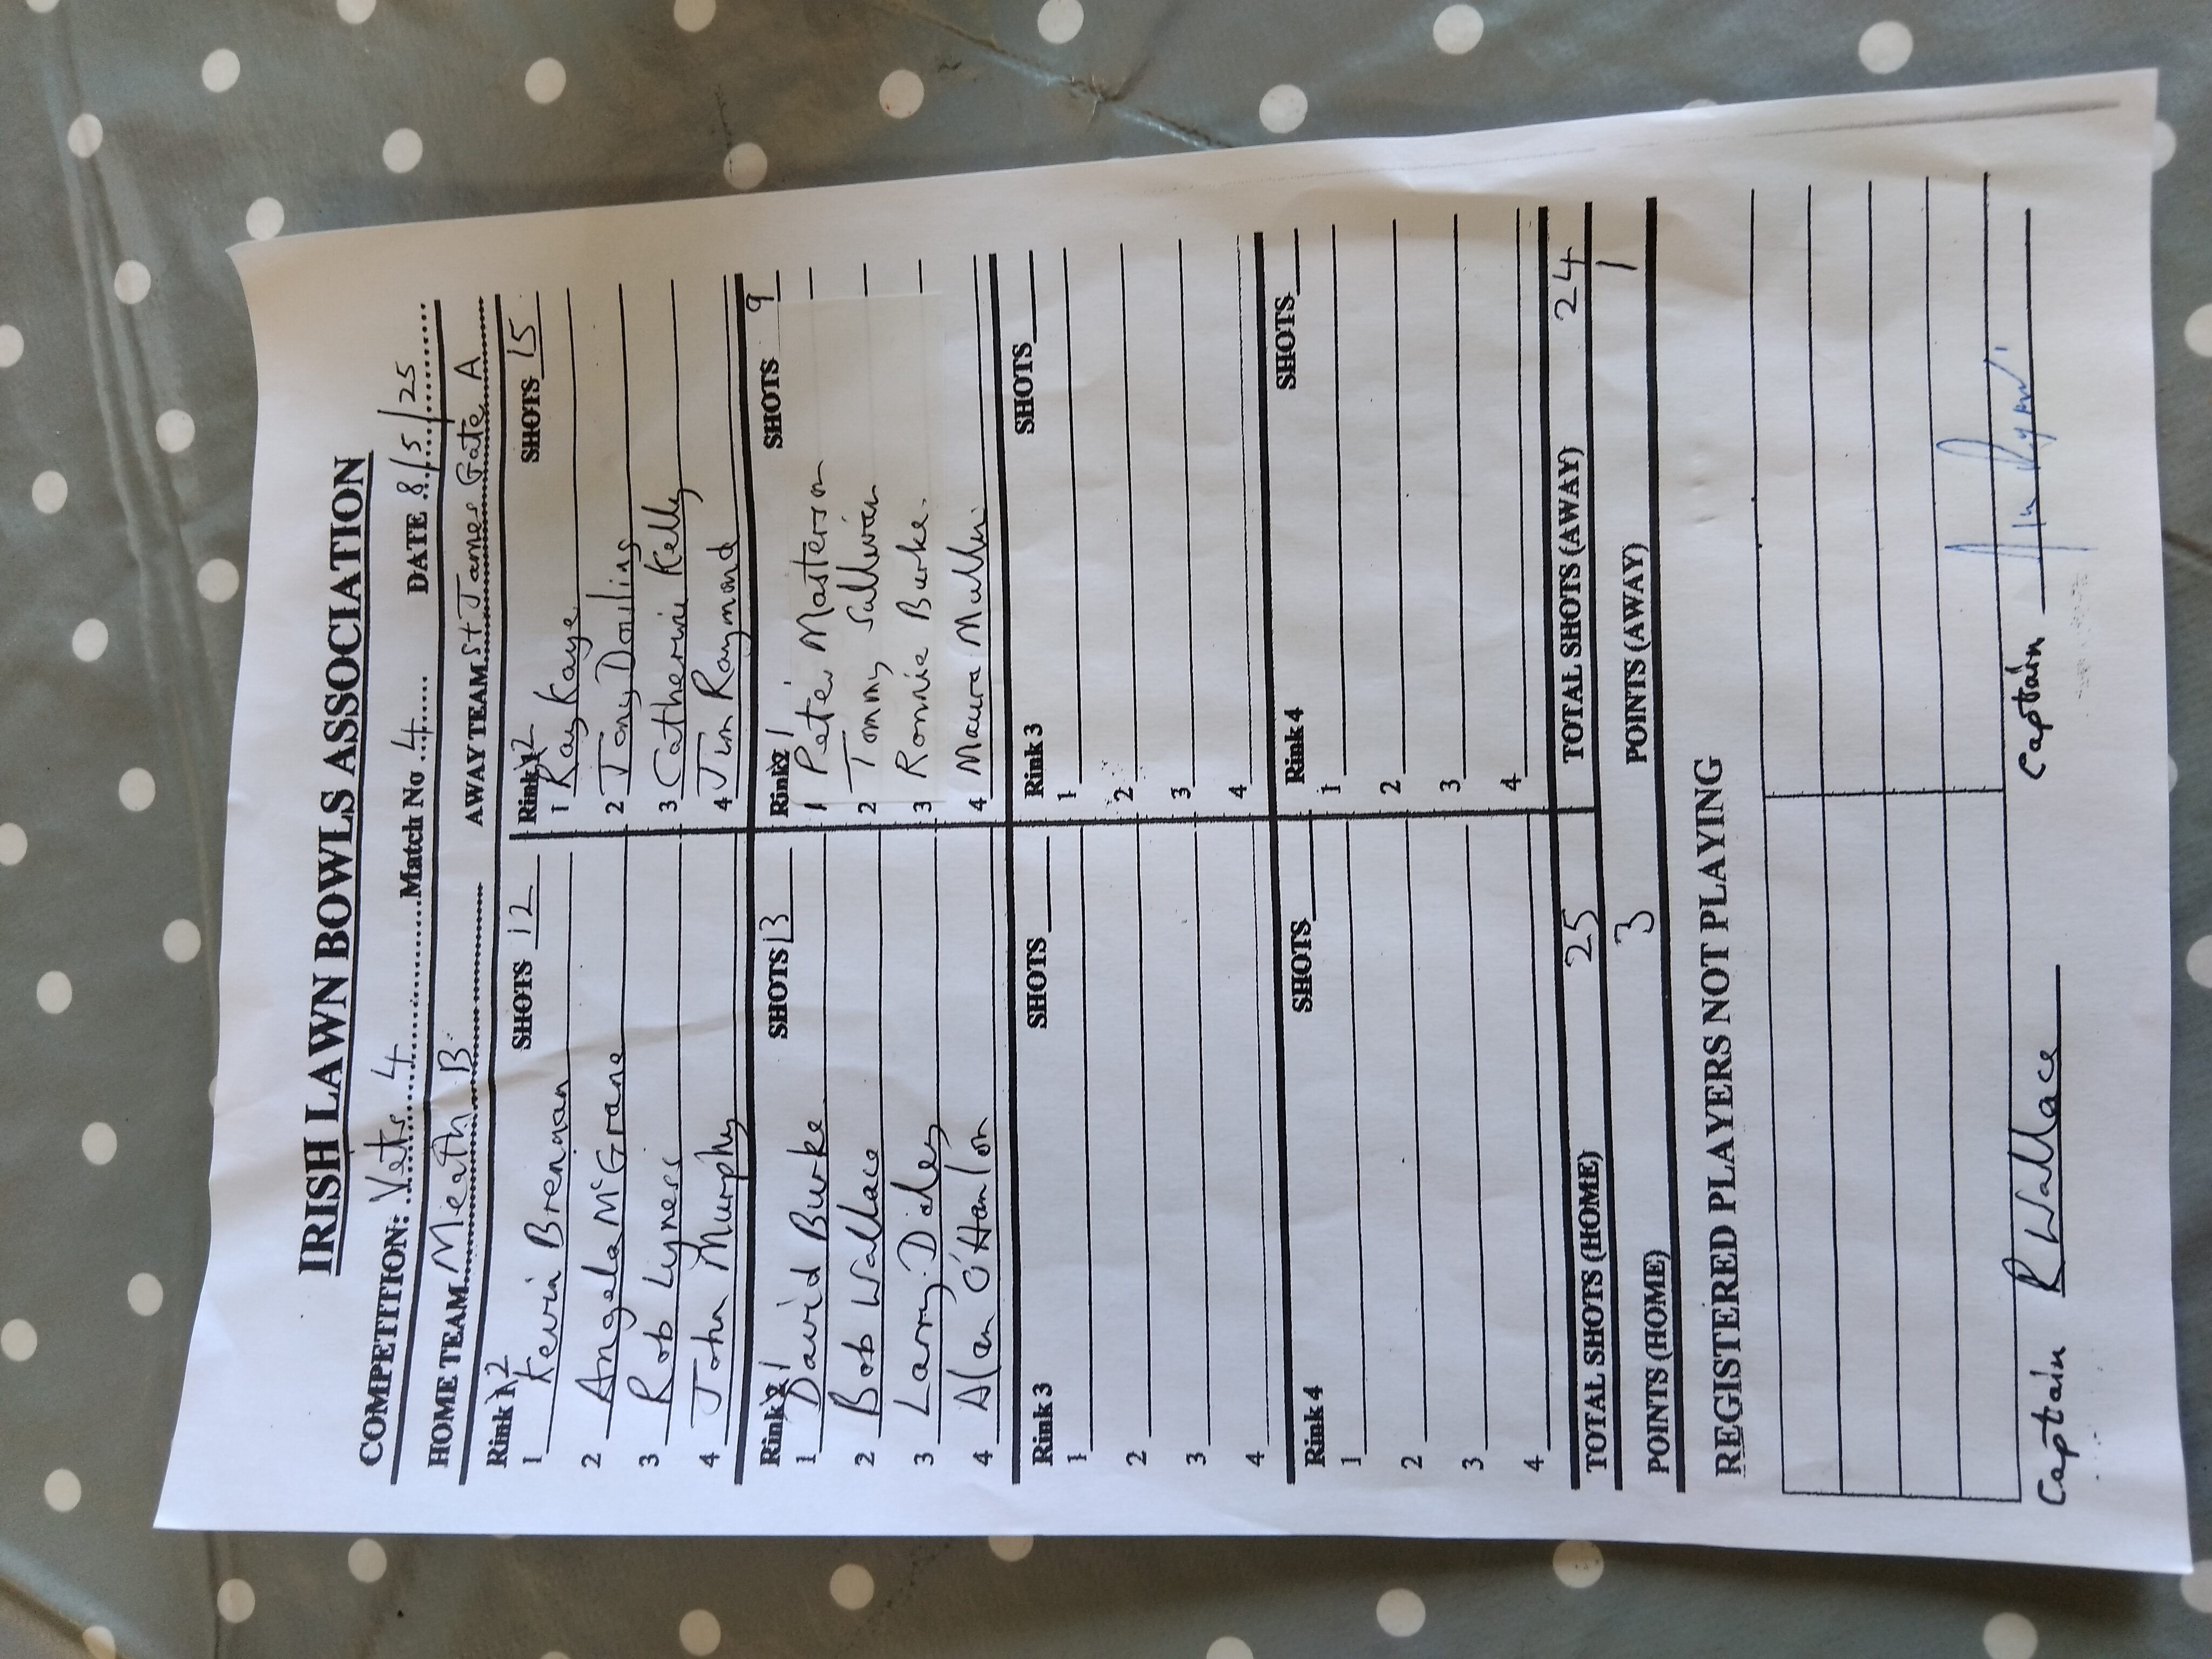 IRISH LAWN BOWLS ASSOCIATION
COMPETITION: Vets 4 Match No 4 DATE 8/5/25
HOME TEAM Meath B. AWAY TEAM St James Gate A
Rink 1 2 SHOTS 12 Rink 1 2 SHOTS 15
1 Kevin Brennan 1 Ray Kaye
2 Angela McGrane 2 Tony Dowling
3 Rob Lyness 3 Catherine Kelly
4 John Murphy 4 Jim Raymond
Rink 2 1 SHOTS 13 Rink 2 1 SHOTS 9
1 David Burke 1 Peter Masterson
2 Bob Wallace 2 Tommy Sullivan
3 Larry 3 Ronnie Burke.
4 Alan O'Hanlon 4 Maura
Rink 3 SHOTS Rink 3 SHOTS
1 1
2 2
3 3
4 4
Rink 4 SHOTS Rink 4 SHOTS
1 1
2 2
3 3
4 4
TOTAL SHOTS (HOME) 25 TOTAL SHOTS (AWAY) 24
POINTS (HOME) 3 POINTS (AWAY) 1
REGISTERED PLAYERS NOT PLAYING
Captain R Wallace Captain